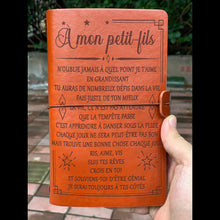 A mon petit-fils
N'OUBLIE JAMAIS À QUEL POINT JE T'AIME
EN GRANDISSANT
TU AURAS DE NOMBREUX DÉFIS DANS LA VIE
FAIS JUSTE DE TON MIEUX
CE N'EST PAS ATTENDRE QUE
QUE LA TEMPÊTE PASSE
C'EST APPRENDRE À DANSER SOUS LA PLUIE
CHAQUE JOUR NE SERA PEUT-ÊTRE PAS BON
MAIS TROUVE UNE BONNE CHOSE CHAQUE JOUR
RIS, AIME, VIS
SUIS TES RÊVES
CROIS EN TOI
ET SOUVIENS-TOI D'ÊTRE GÉNIAL
JE SERAI TOUJOURS À TES CÔTÉS